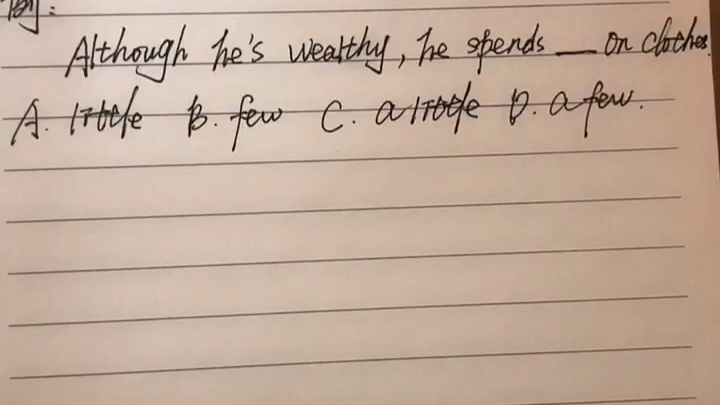 例:
Although he's wealthy, he spends __ on clothes.
A. little B. few C. a little D. a few.